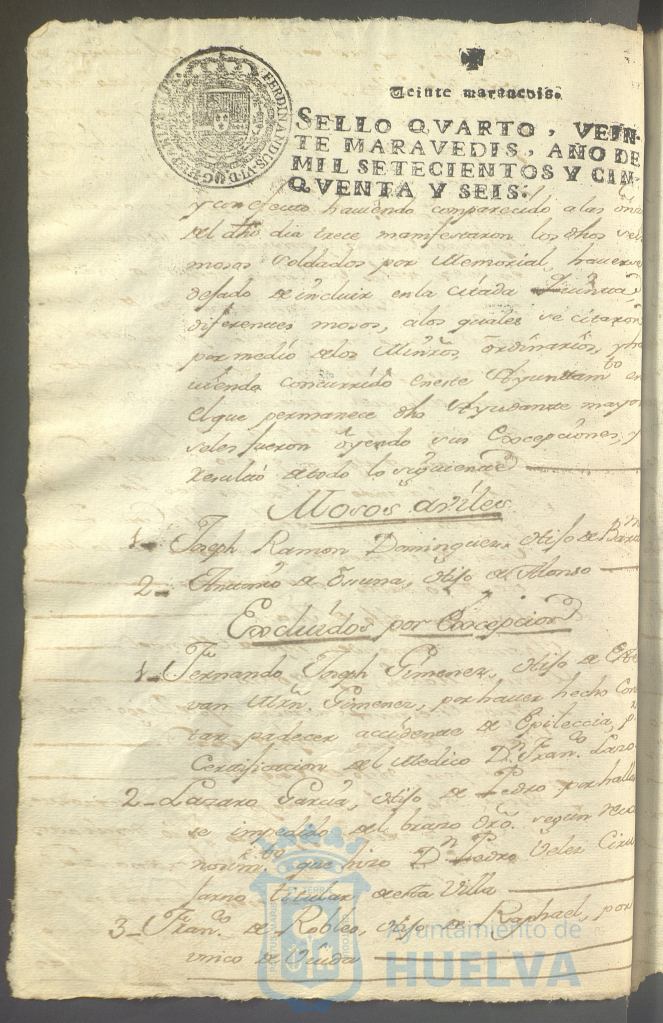 FERDINANDUS·VI·D·G·
Veinte marauedis.
SELLO QVARTO, VEIN-
TE MARAVEDIS, AÑO DE
MIL SETECIENTOS Y CIN-
QVENTA Y SEIS.
y con efecto haviendo comparecido a las
del dho dia trece manifestaron los dhos
mosos soldados por Memorial, haverse
dejado de incluir en la citada Quinta
diferentes mosos, a los quales se citaron
por medio de los Minros. ordinarios, y ha
viendo concurrido en este Ayuntamto en
el que permanece dho Ayudante mayor
seles fueron oyendo sus Excepciones, y
resultó de todo lo siguiente
Mosos avíles
1- Joseph Ramon Dominguez, Hijo de
2- Antonio de Osuna, Hijo de Alonso
Excluídos por Excepcion
1- Fernando Joseph Gimenez, Hijo de Este
van Mrn. Gimenez, por haver hecho Cons
tar padecer accidente de Epileccia, p
Certificacion del Medico Dn. Franco. Lazo
2- Lazaro Garcia, Hijo de Pedro por hallar
se impedido del brazo dro. segun reco
nocimto que hizo Dn Pedro Velez Ciru
jano titular de esta Villa
3- Franco. de Robles, Hijo de Raphael, por
unico de Viuda
Ayuntamiento de
HUELVA